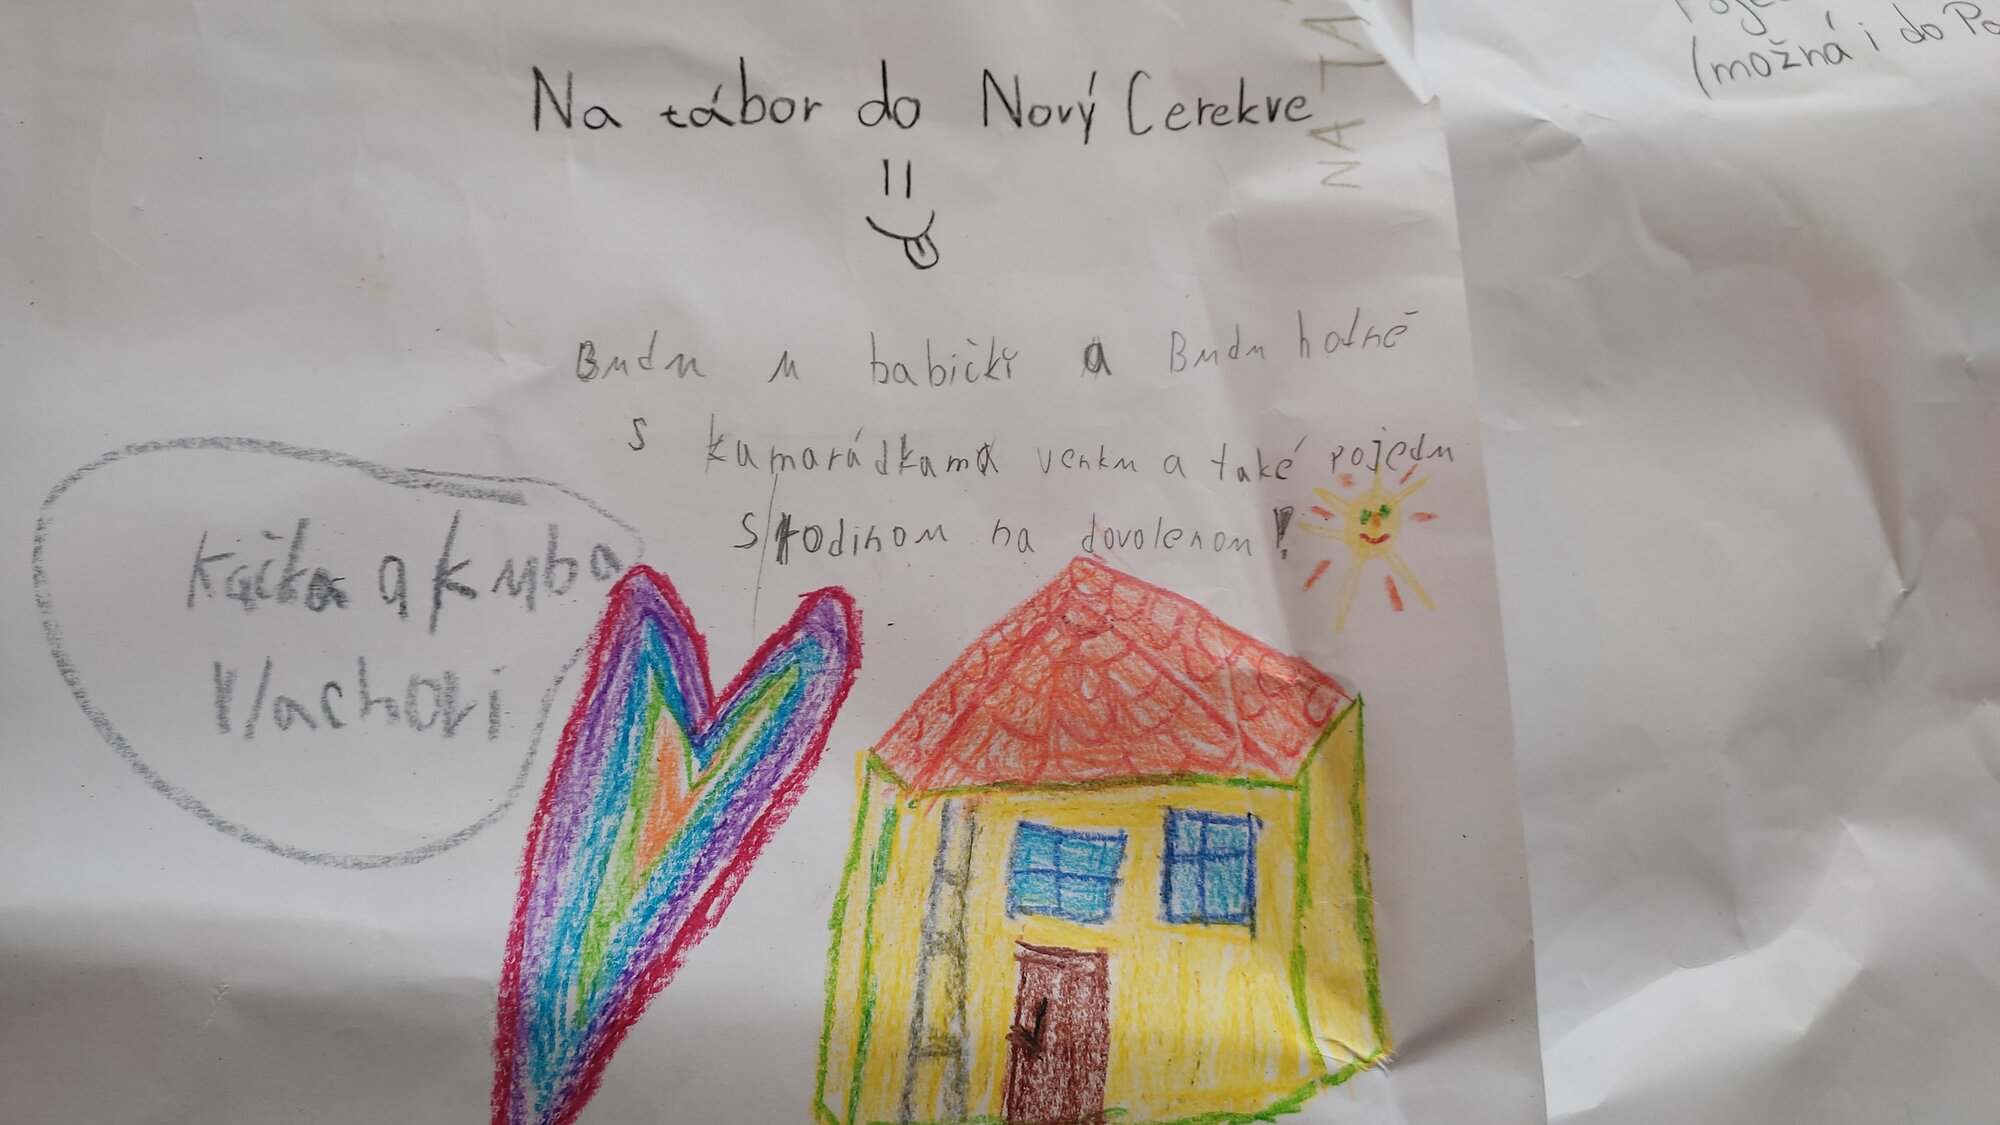 Na tábor do Nový Cerekve
NA TÁ
(možná i do Po
Budu u babički a Budu hodně
s kamarádkama venku a také pojedu
s rodinou na dovolenou!
Kačka a Kuba
Vlachovi